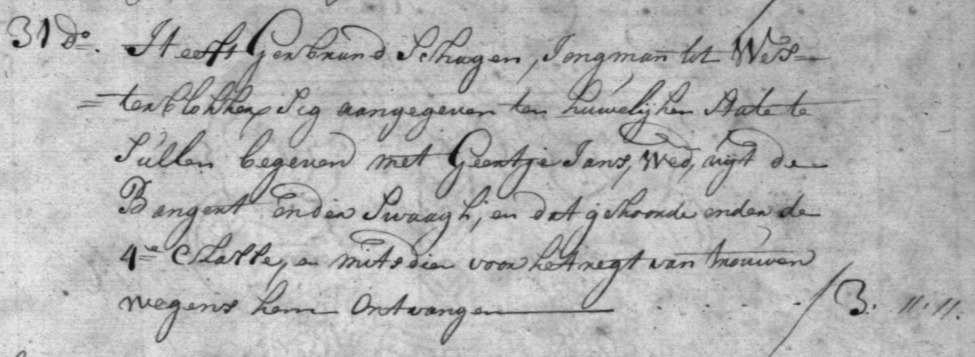 31 do. Heeft Gerbrand Schagen, Jongman tot Wes=
=terblokker, Sig aangegeven ten huwelijken State te
Sùllen begeven met Geertje Jans, Wed, uijt de
Bangert onder Swaagh, en dat gehoorde onder de
4e Classe, en mitsdien voor het regt van trouwen
wegens hem ontvangen . . . . / 3. 11. 11.